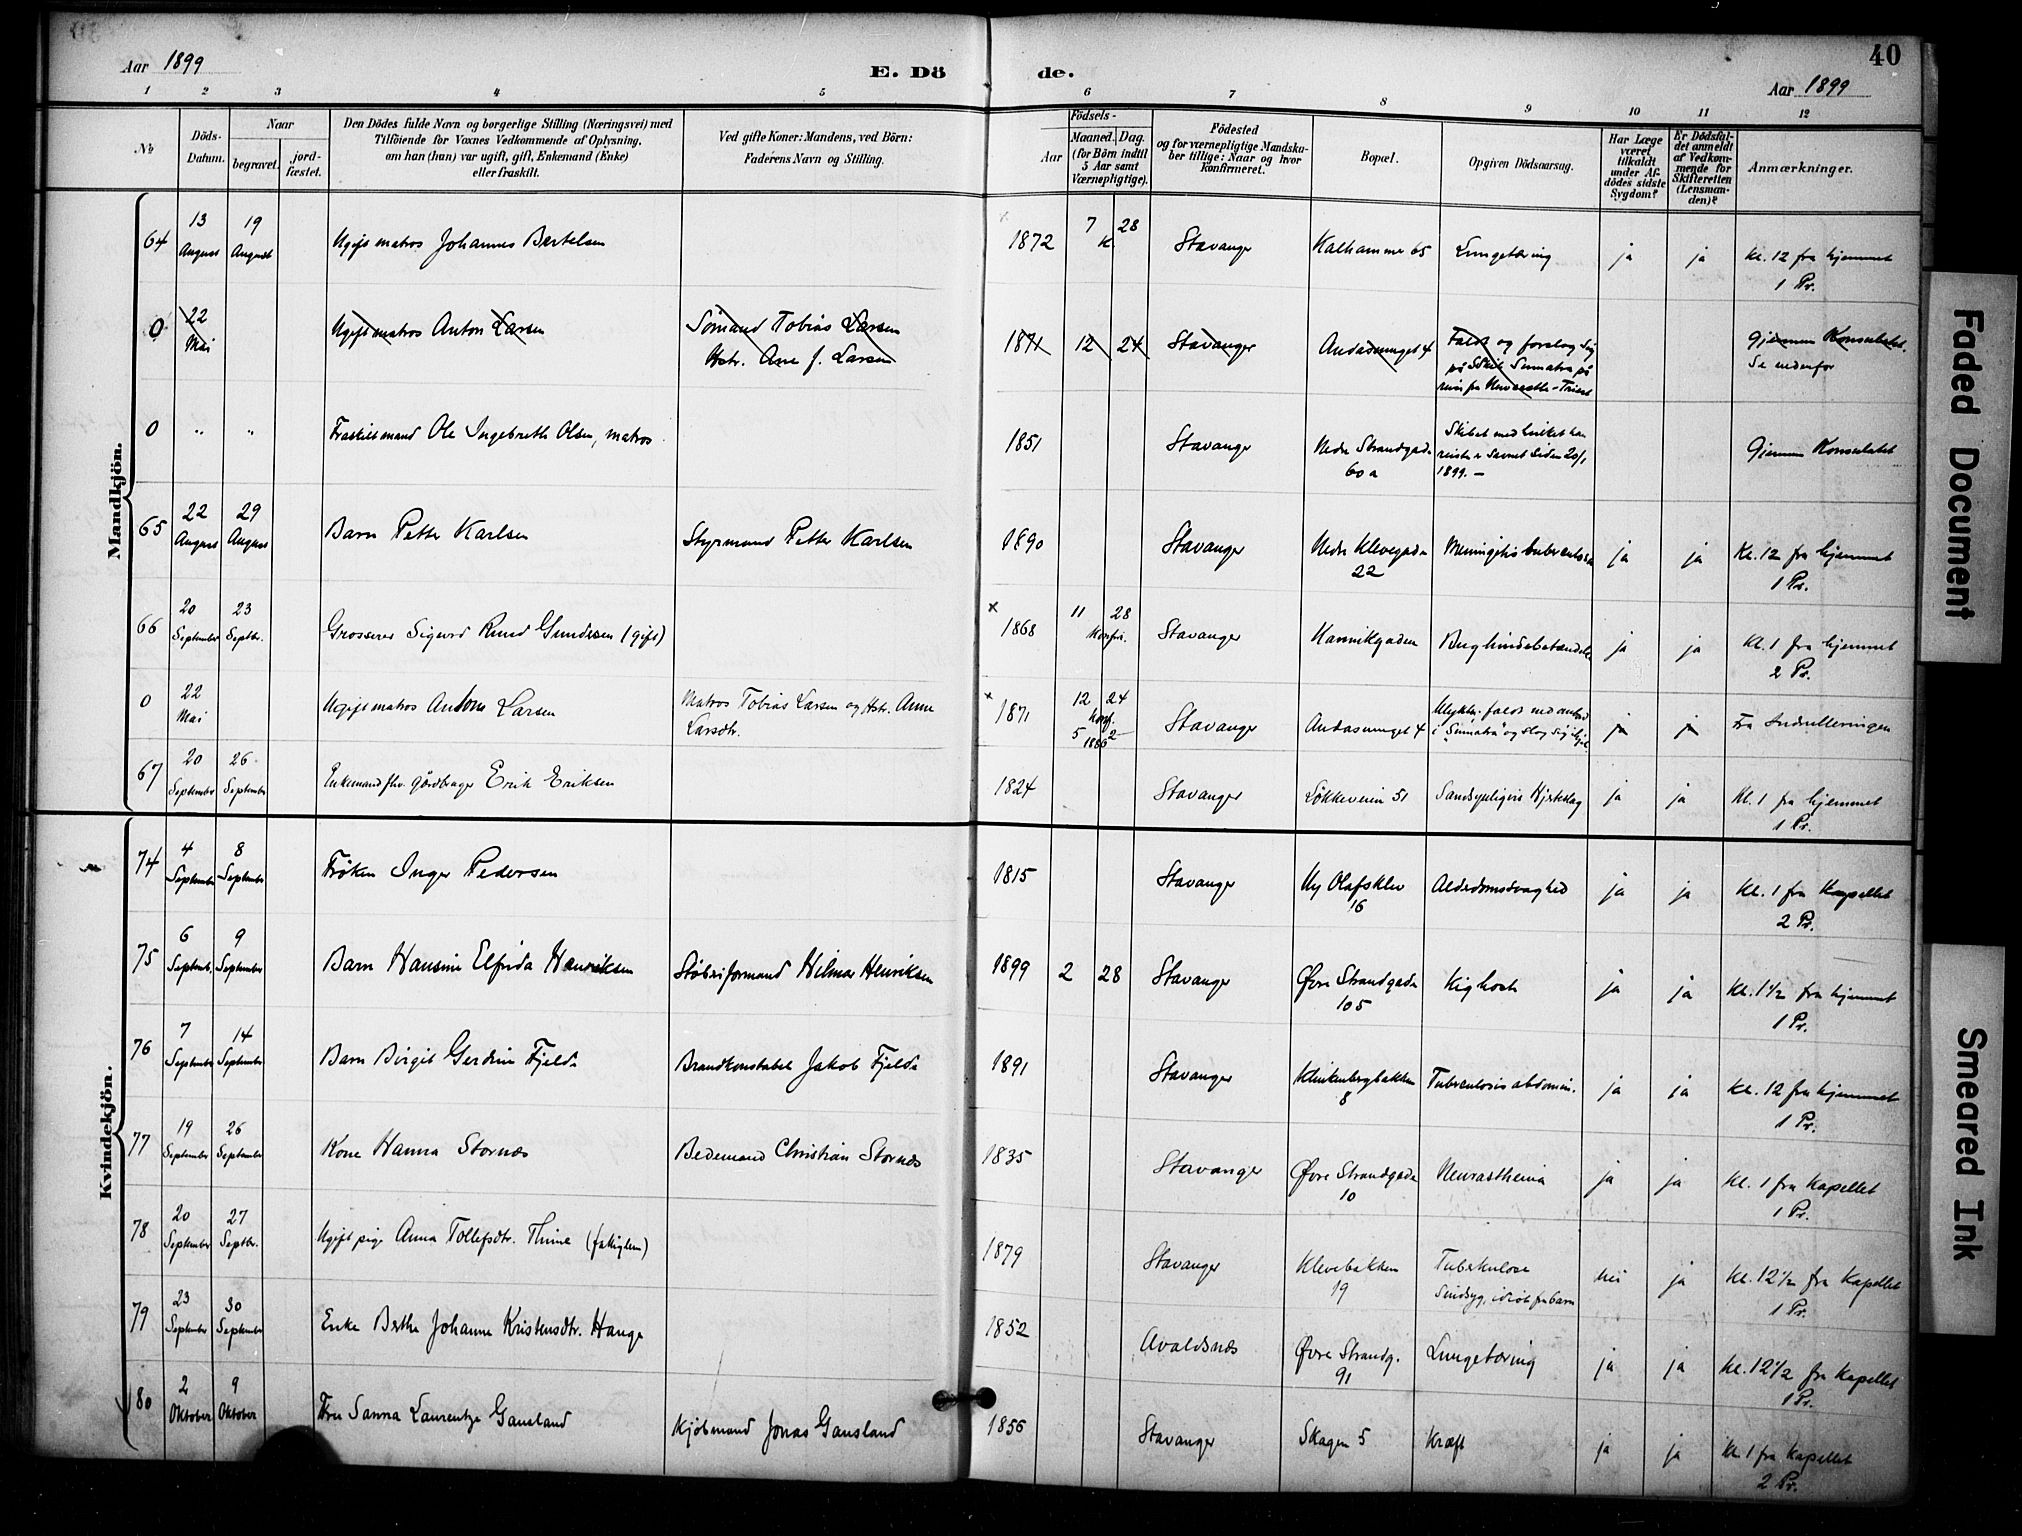 Aar 1899
E. Dö
de.
Aar 1899
40
1 2 3 4 5 6 7 8 9 10 11 12
No
Döds-
Datum.
Naar
begravet.
jord-
fæstet.
Den Dödes fulde Navn og borgerlige Stilling (Næringsvei) med
Tilföiende for Voxnes Vedkommende af Oplysning,
om han (hun) var ugift, gift, Enkemand (Enke)
eller fraskilt.
Ved gifte Koner: Mandens, ved Börn:
Faderens Navn og Stilling.
Födsels-
Aar
Maaned. Dag.
(for Börn indtil
5 Aar samt
Værnepligtige).
Födested
og for værnepligtige Mandska-
ber tillige: Naar og hvor
konfirmeret.
Bopæl.
Opgiven Dödsaarsag.
Har Læge
været
tilkaldt
under Af-
dödes sidste
Sygdom?
Er Dödsfal-
det anmeldt
af Vedkom-
mende for
Skifteretten
(Lensman-
den)?
Anmærkninger.
Mandkjön.
64 13 August 19 August Ugift matros Johannes Bertelsen 1872 7 28 K. Stavanger Kalhammer 65 Lungetæring ja ja Kl. 12 fra hjemmet
1 Pr.
0 22 Mai Ugift matros Anton Larsen Sømand Tobias Larsen 1871 12 24 Stavanger Andasmuget 4 Faldt og forslog sig Gjennem Konsulatet
Hstr. Ane J. Larsen på Skib Sumatra på Se nedenfor
0 " " Fraskilt mand Ole Ingebreth Olsen, matros 1851 Stavanger Nedre Strandgade Skibet med hvilket han Gjennem Konsulatet
60 a reiste er savnet siden 20/1
1899. —
65 22 August 29 August Barn Petter Karlsen Styrmand Petter Karlsen 1890 Stavanger Nedre Klevegade Meningitis tuberculosa ja ja Kl. 12 fra hjemmet
22 1 Pr.
66 20 September 23 Septbr. Grosserer Sigurd Rund Gundersen (gift) x 1868 11 28 Konfir. Stavanger Kannikgaden Bughindebetændelse ja ja Kl. 1 fra hjemmet
2 Pr.
0 22 Mai Ugift matros Anton Larsen Matros Tobias Larsen og Hstr. Anne x 1871 12 24 Stavanger Andasmuget 4 ja ja Fra Indrulleringen
Larsdtr. Konf. 5 2 1886 i "Sumatra" og slog sig ihjel
67 20 September 26 September Enkemand fhv. gårdbruger Erik Eriksen 1824 Stavanger Løkkeveien 51 Sandsynligvis Hjerteslag ja ja Kl. 1 fra hjemmet
1 Pr.
Kvindekjön.
74 4 September 8 September Frøken Inger Pedersen 1815 Stavanger Ny Olafsklev Alderdomssvaghed ja ja Kl. 1 fra Kapellet
16 2 Pr.
75 6 Septemb. 9 September Barn Hansine Elfrida Henriksen Støberiformand Hilmar Henriksen 1899 2 28 Stavanger Øvre Strandgade Kighoste ja ja Kl. 1 1/2 fra hjemmet
105 1 Pr.
76 7 September 14 September Barn Birgit Gerdine Fjelde Brandkonstabel Jakob Fjelde 1891 Stavanger Klinkenbergbakken Tuberculosis abdomin. ja ja Kl. 12 fra hjemmet
8 1 Pr.
77 19 September 26 September Kone Hanna Stornæs Bedemand Christian Stornæs 1835 Stavanger Øvre Strandgade Neurasthenia ja ja Kl. 1 fra Kapellet
10 1 Pr.
78 20 September 27 Septbr. Ugift pige Anna Tollefsdtr. Thime (fattiglem) 1879 Stavanger Klevebakken Tuberkulose nei ja Kl. 12 1/2 fra Kapellet
19 Sindsyg, idiot fra barn 1 Pr.
79 23 September 30 September Enke Berthe Johanne Kristensdtr. Hauge 1852 Avaldsnæs Øvre Strandg. Lungetæring ja ja Kl. 12 1/2 fra Kapellet
91 1 Pr.
80 2 Oktober 9 Oktober Fru Sanna Laurentze Gausland Kjøbmand Jonas Gausland 1856 Stavanger Skagen 5 Kræft ja ja Kl. 1 fra Kapellet
2 Pr.
Faded Document
Smeared Ink